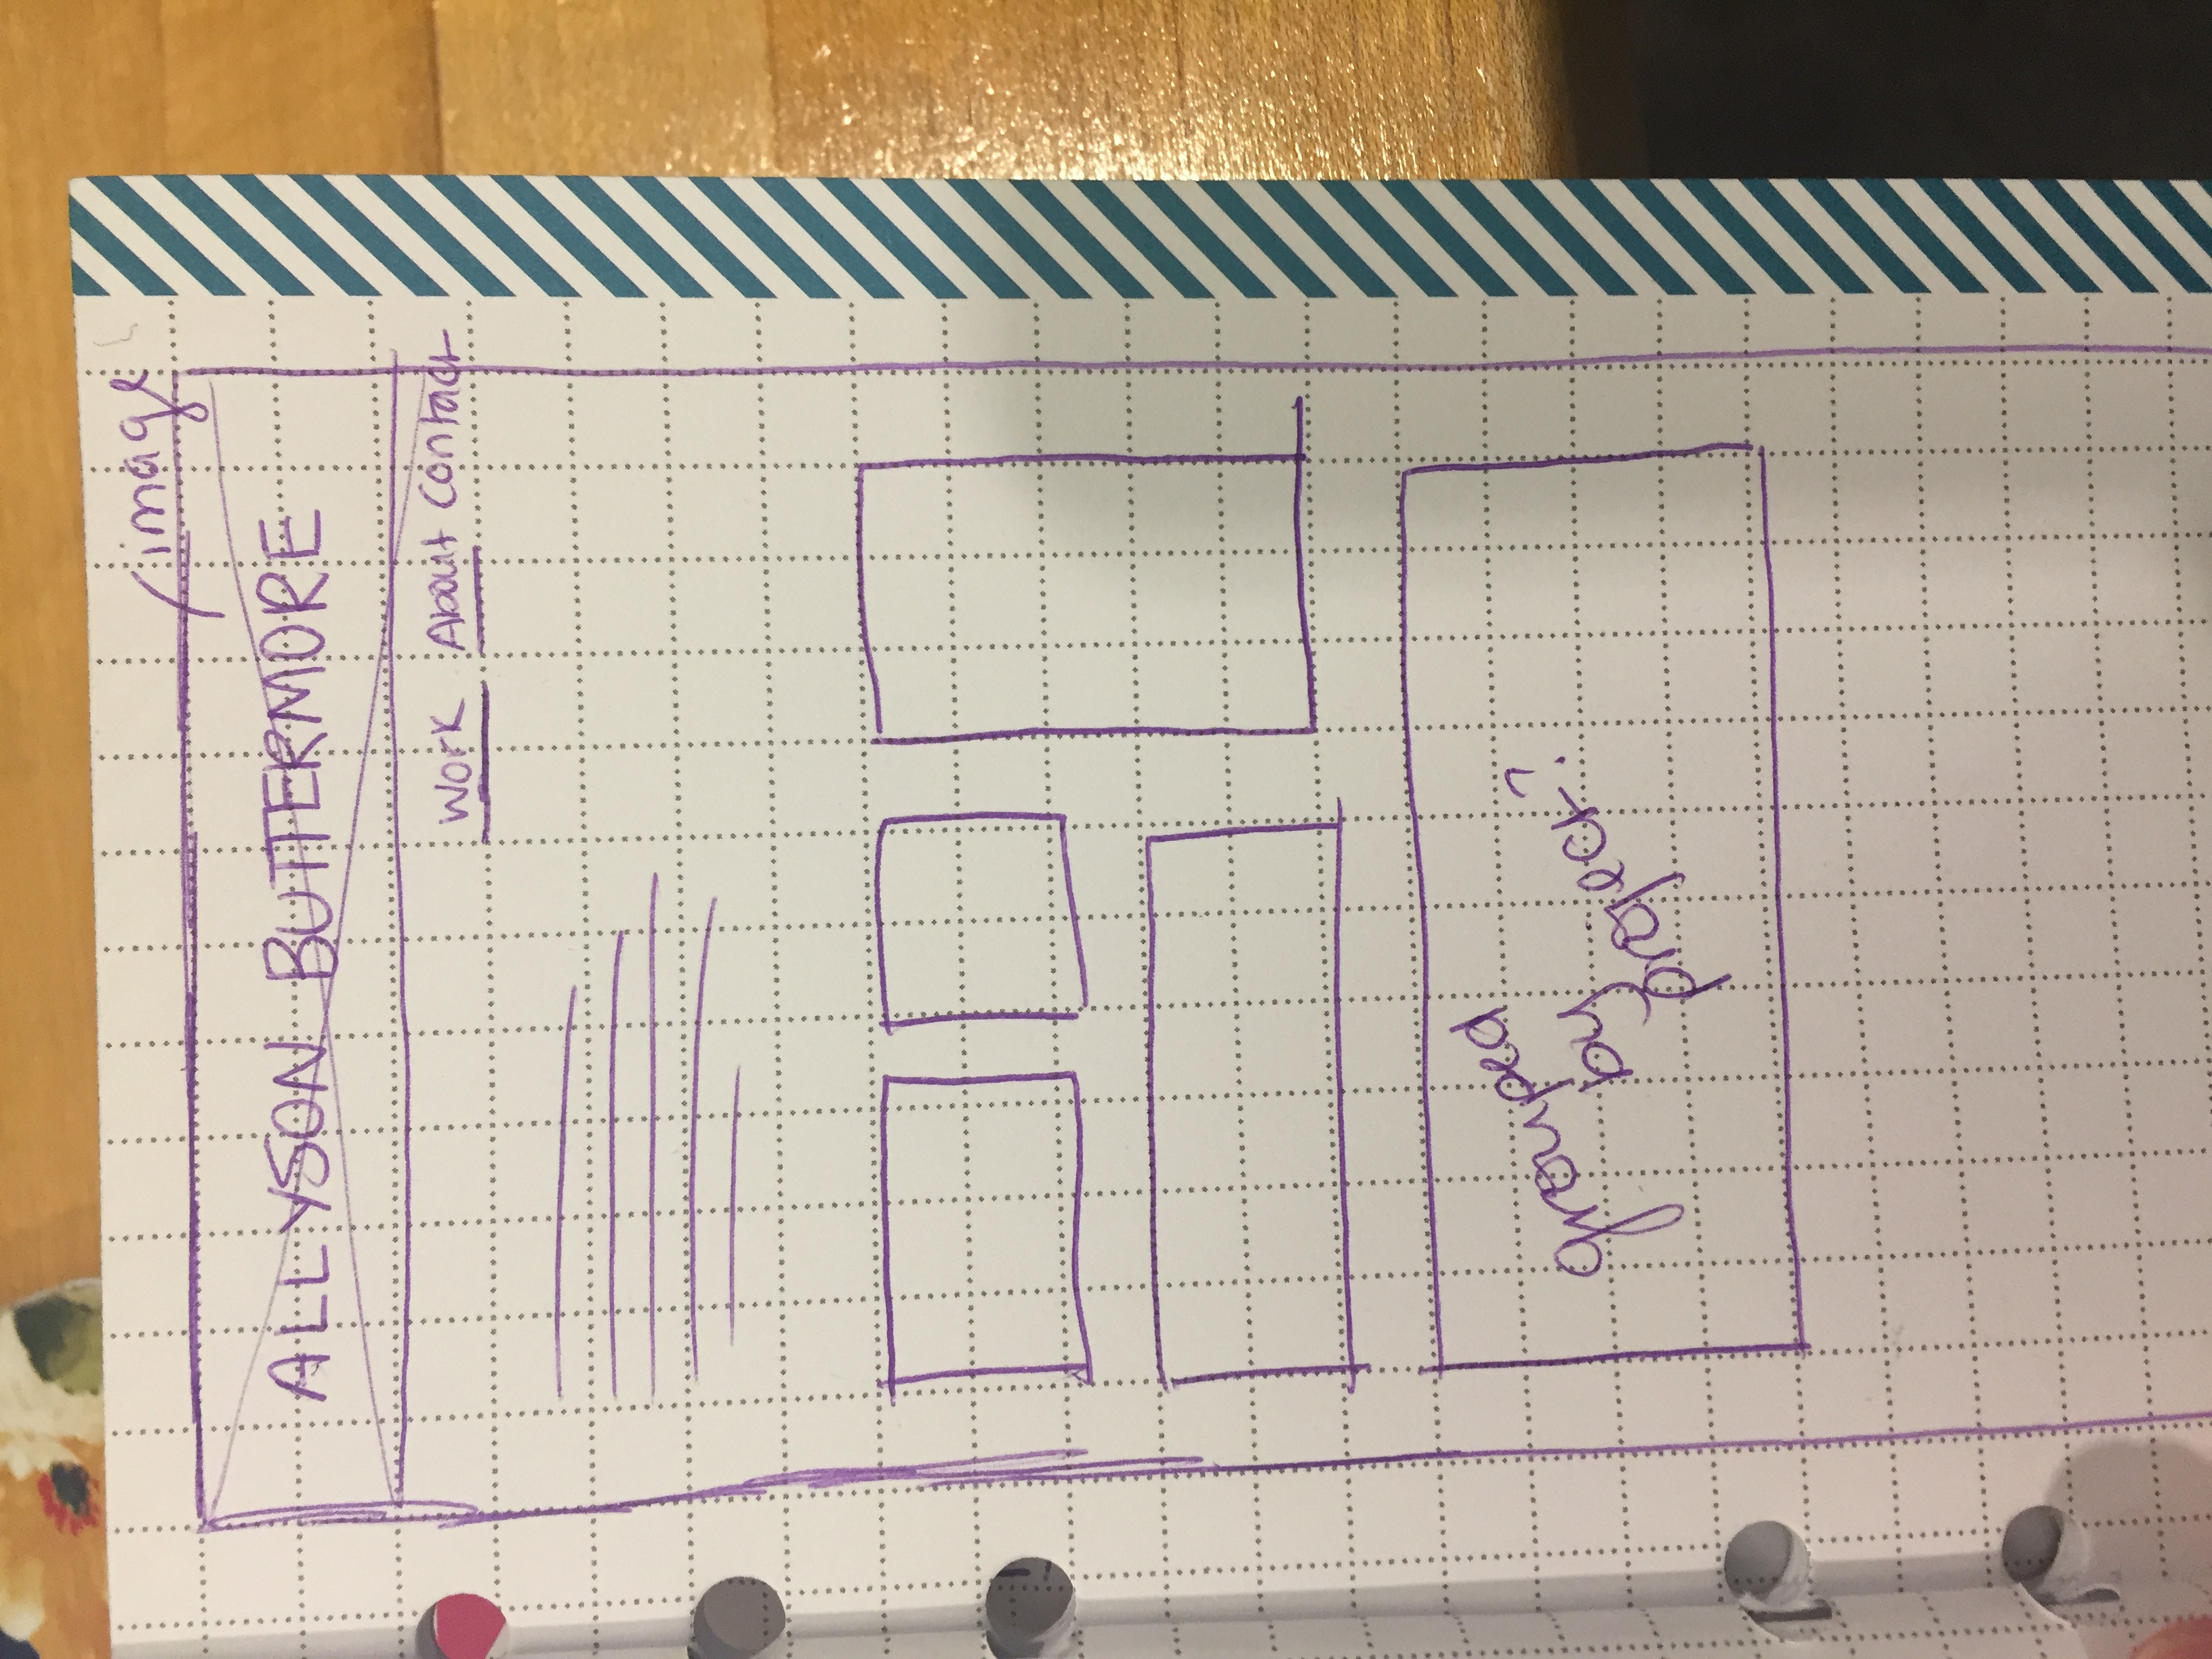 image
ALLYSON BUTTERMORE
Work About Contact
grouped
by
project?